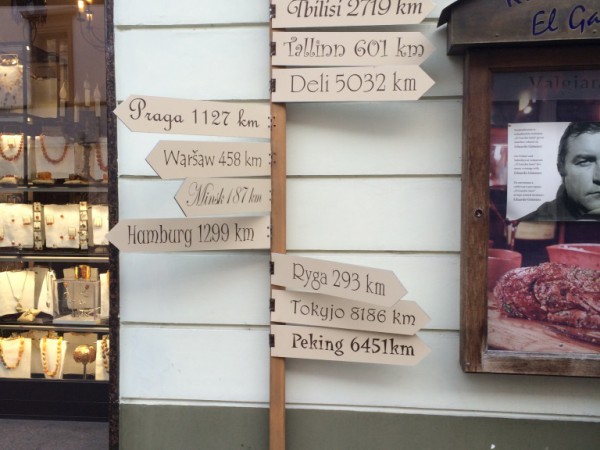 Tbilisi 2719 km
Tallinn 601 km
Deli 5032 km
Praga 1127 km
Warsaw 458 km
Minsk 187 km
Hamburg 1299 km
Ryga 293 km
Tokyjo 8186 km
Peking 6451km
El Ga
Valgiar